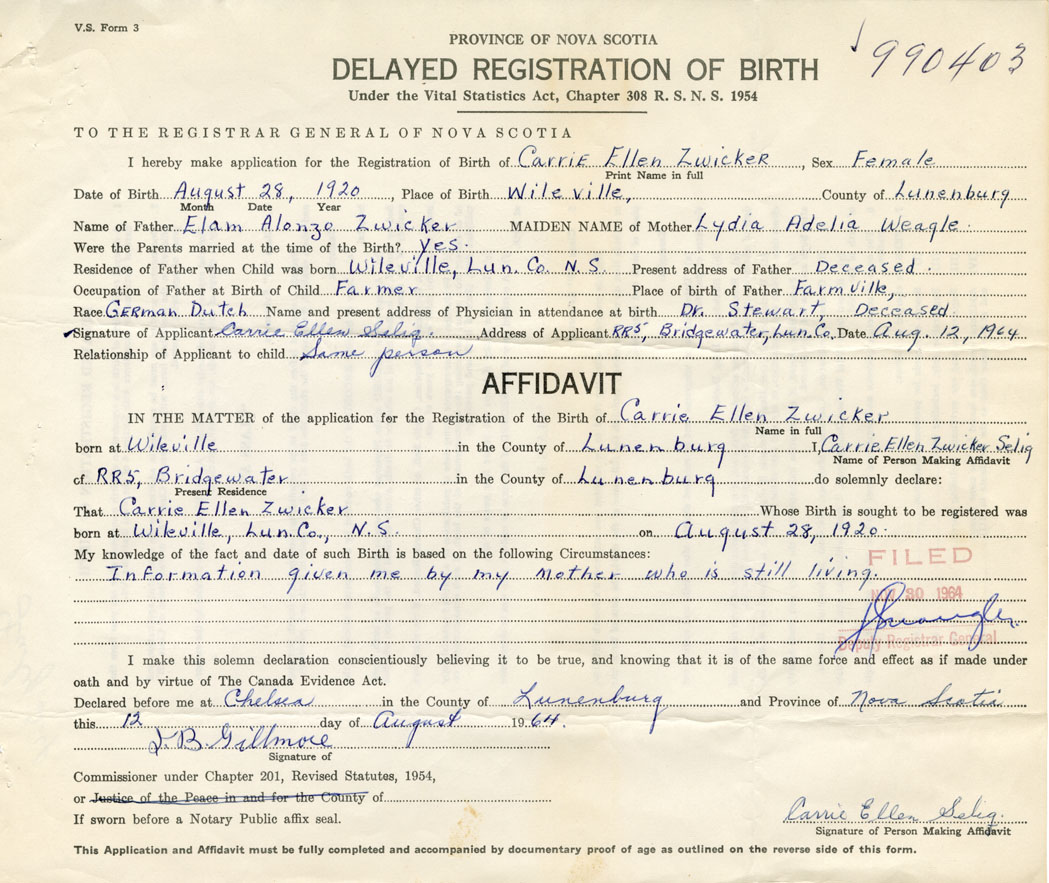 V.S. Form 3
990403
PROVINCE OF NOVA SCOTIA
DELAYED REGISTRATION OF BIRTH
Under the Vital Statistics Act, Chapter 308 R. S. N. S. 1954
TO THE REGISTRAR GENERAL OF NOVA SCOTIA
I hereby make application for the Registration of Birth of Carrie Ellen Zwicker, Sex Female
Print Name in full
Date of Birth August 28, 1920, Place of Birth Wileville, County of Lunenburg
Month Date Year
Name of Father Elam Alonzo Zwicker MAIDEN NAME of Mother Lydia Adelia Weagle.
Were the Parents married at the time of the Birth? yes.
Residence of Father when Child was born Wileville, Lun. Co. N. S. Present address of Father Deceased.
Occupation of Father at Birth of Child Farmer Place of birth of Father Farmville,
Race German Dutch Name and present address of Physician in attendance at birth Dr. Stewart, Deceased.
Signature of Applicant Carrie Ellen Selig. Address of Applicant RR5, Bridgewater, Lun. Co. Date Aug. 12, 1964
Relationship of Applicant to child Same person
AFFIDAVIT
IN THE MATTER of the application for the Registration of the Birth of Carrie Ellen Zwicker
Name in full
born at Wileville in the County of Lunenburg I, Carrie Ellen Zwicker Selig
Name of Person Making Affidavit
of RR5, Bridgewater in the County of Lunenburg do solemnly declare:
Present Residence
That Carrie Ellen Zwicker Whose Birth is sought to be registered was
born at Wileville, Lun. Co., N. S. on August 28, 1920.
My knowledge of the fact and date of such Birth is based on the following Circumstances:
Information given me by my Mother who is still living.
FILED
30 1964
Deputy Registrar General
I make this solemn declaration conscientiously believing it to be true, and knowing that it is of the same force and effect as if made under
oath and by virtue of The Canada Evidence Act.
Declared before me at Chelsea in the County of Lunenburg and Province of Nova Scotia
this 12 day of August 1964.
J. B. Gillmore
Signature of
Commissioner under Chapter 201, Revised Statutes, 1954,
or Justice of the Peace in and for the County of
If sworn before a Notary Public affix seal.
Carrie Ellen Selig.
Signature of Person Making Affidavit
This Application and Affidavit must be fully completed and accompanied by documentary proof of age as outlined on the reverse side of this form.